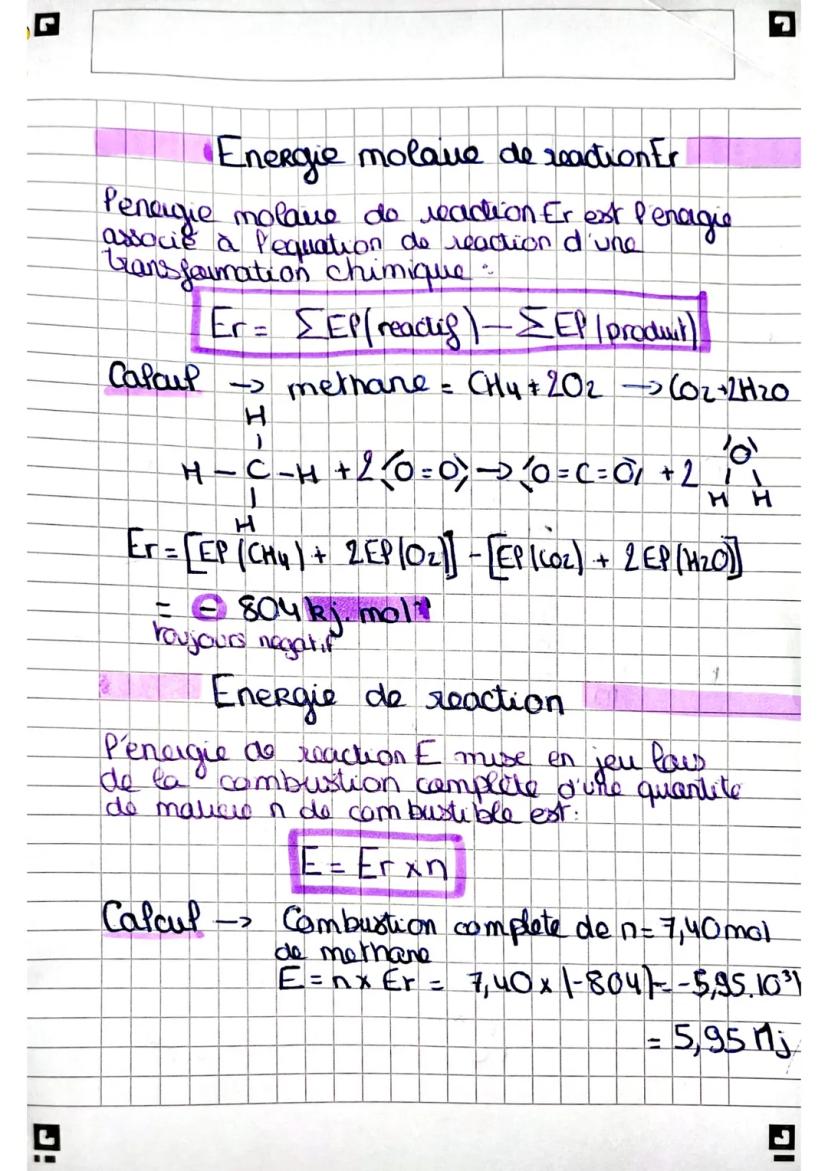 Energie molaire de reaction Er
l'energie molaire de reaction Er est l'energie
associé à l'equation de reaction d'une
transformation chimique :
Er = ΣEP(reactif) - ΣEP(produit)
Calcul → methane = CH4 + 2O2 → CO2 + 2H2O
H
H - C - H + 2 ⟨O=O⟩ → ⟨O=C=O⟩ + 2 O
H H
H
Er = [EP(CH4) + 2EP(O2)] - [EP(CO2) + 2EP(H2O)]
= - 804 kj.mol⁻¹
toujours negatif
Energie de reaction
l'énergie de reaction E mise en jeu lors
de la combustion complète d'une quantite
de matiere n de combustible est :
E = Er x n
Calcul → Combustion complete de n = 7,40 mol
de methane
E = n x Er = 7,40 x (-804) = -5,95.10³
= 5,95 Mj